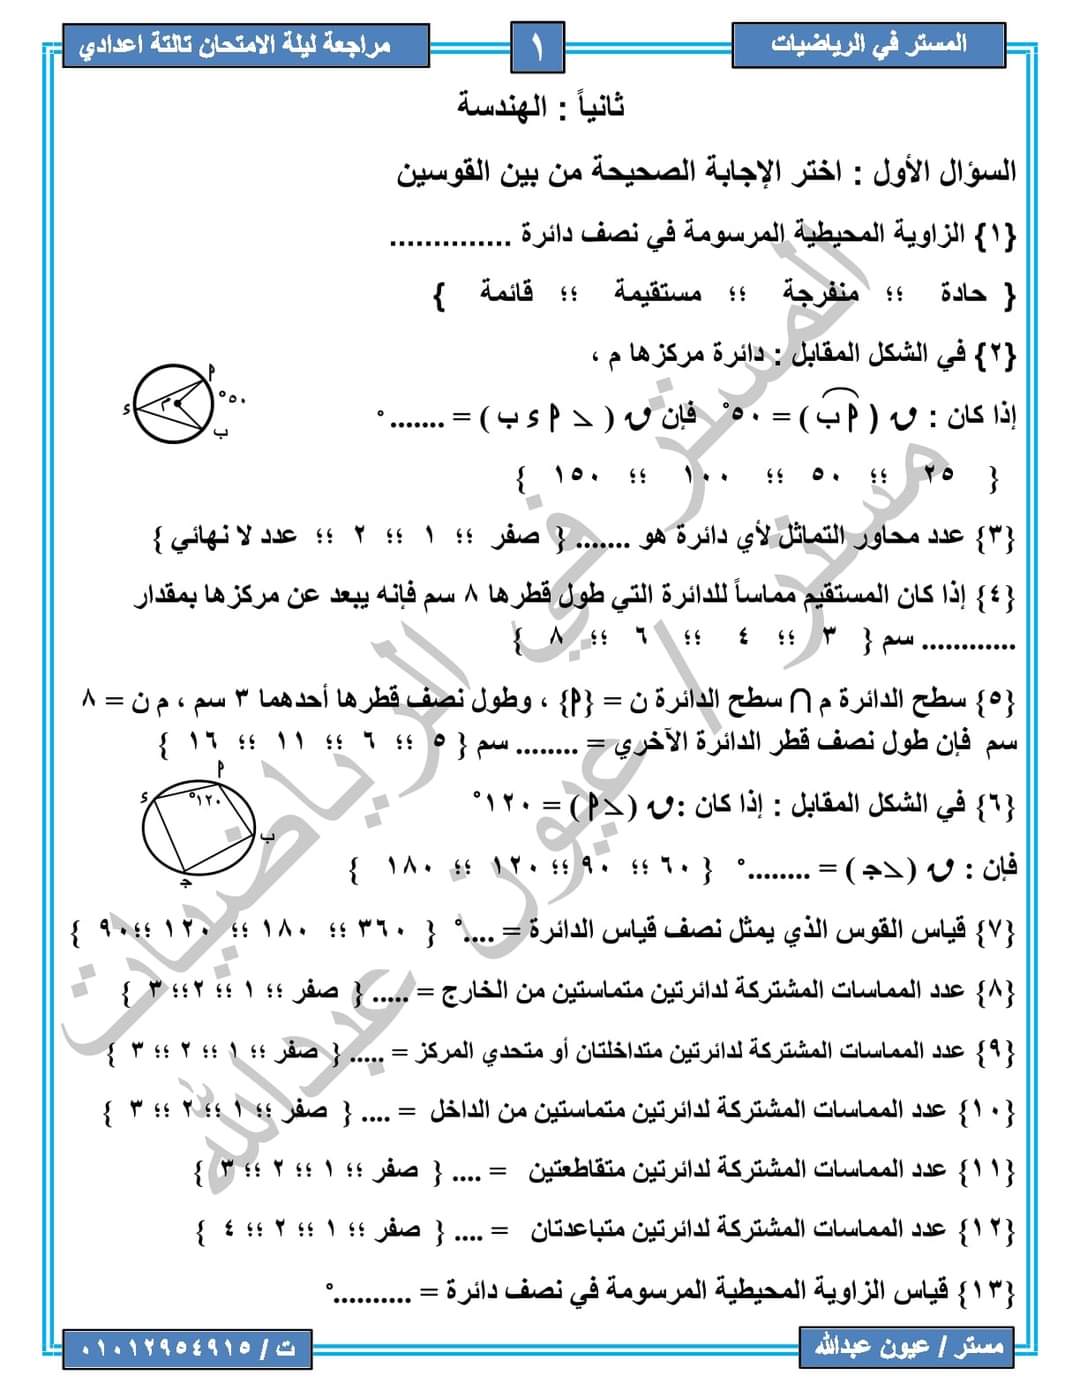 المستر في الرياضيات
١
مراجعة ليلة الامتحان تالتة اعدادي
ثانياً : الهندسة
السؤال الأول : اختر الإجابة الصحيحة من بين القوسين
{١} الزاوية المحيطية المرسومة في نصف دائرة ..............
{ حادة ؛؛ منفرجة ؛؛ مستقيمة ؛؛ قائمة }
{٢} في الشكل المقابل : دائرة مركزها م ،
إذا كان : ق ( أ ب ) = ٥٠° فإن ق ( ∠ أ ء ب ) = .......°
أ
٥٠°
م
ء
ب
{ ٢٥ ؛؛ ٥٠ ؛؛ ١٠٠ ؛؛ ١٥٠ }
{٣} عدد محاور التماثل لأي دائرة هو ....... { صفر ؛؛ ١ ؛؛ ٢ ؛؛ عدد لا نهائي }
{٤} إذا كان المستقيم مماساً للدائرة التي طول قطرها ٨ سم فإنه يبعد عن مركزها بمقدار
............ سم { ٣ ؛؛ ٤ ؛؛ ٦ ؛؛ ٨ }
{٥} سطح الدائرة م ∩ سطح الدائرة ن = {أ} ، وطول نصف قطرها أحدهما ٣ سم ، م ن = ٨
سم فإن طول نصف قطر الدائرة الآخري = ........ سم { ٥ ؛؛ ٦ ؛؛ ١١ ؛؛ ١٦ }
{٦} في الشكل المقابل : إذا كان :ق (∠أ ) = ١٢٠°
فإن : ق (∠ج ) = ........° { ٦٠ ؛؛ ٩٠ ؛؛ ١٢٠ ؛؛ ١٨٠ }
أ
ء
١٢٠°
ب
ج
{٧} قياس القوس الذي يمثل نصف قياس الدائرة = ....° { ٣٦٠ ؛؛ ١٨٠ ؛؛ ١٢٠ ؛؛٩٠ }
{٨} عدد المماسات المشتركة لدائرتين متماستين من الخارج = ..... { صفر ؛؛ ١ ؛؛ ٢؛؛ ٣ }
{٩} عدد المماسات المشتركة لدائرتين متداخلتان أو متحدي المركز = ..... { صفر ؛؛ ١ ؛؛ ٢ ؛؛ ٣ }
{١٠} عدد المماسات المشتركة لدائرتين متماستين من الداخل = .... { صفر ؛؛ ١ ؛؛ ٢ ؛؛ ٣ }
{١١} عدد المماسات المشتركة لدائرتين متقاطعتين = .... { صفر ؛؛ ١ ؛؛ ٢ ؛؛ ٣ }
{١٢} عدد المماسات المشتركة لدائرتين متباعدتان = .... { صفر ؛؛ ١ ؛؛ ٢ ؛؛ ٤ }
{١٣} قياس الزاوية المحيطية المرسومة في نصف دائرة = ..........°
المستر في الرياضيات
مستر / عيون عبدالله
مستر / عيون عبدالله
ت / ٠١٠١٢٩٥٤٩١٥